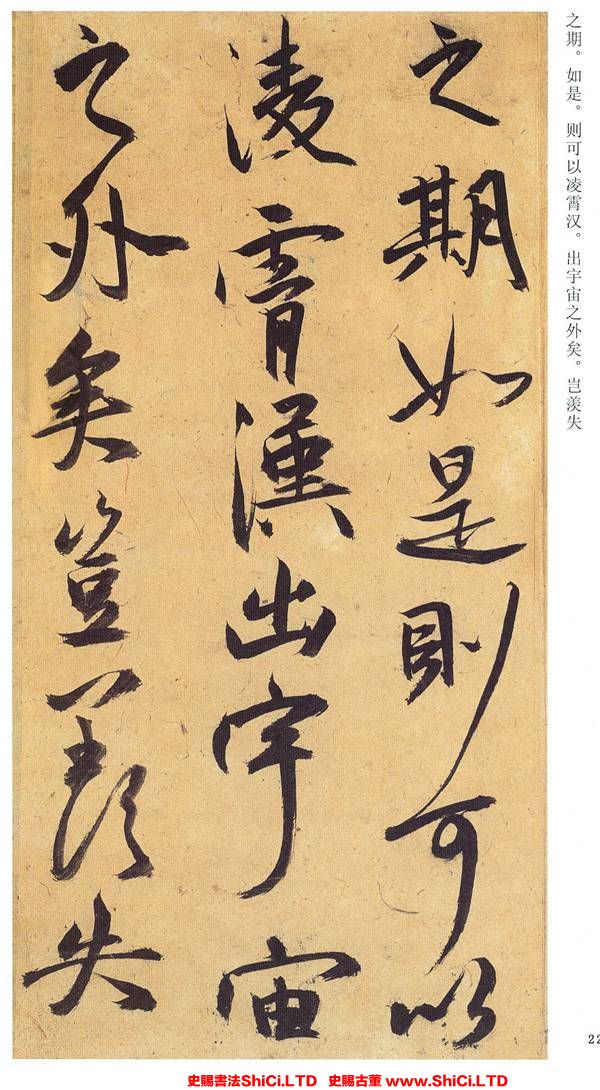 之期。如是。则可以凌霄汉。出宇宙之外矣。岂羡失
之期如是則可以
凌霄漢出宇宙
之外矣豈羡失
22
史賜書法ShiCi.LTD 史賜古董 www.ShiCi.LTD